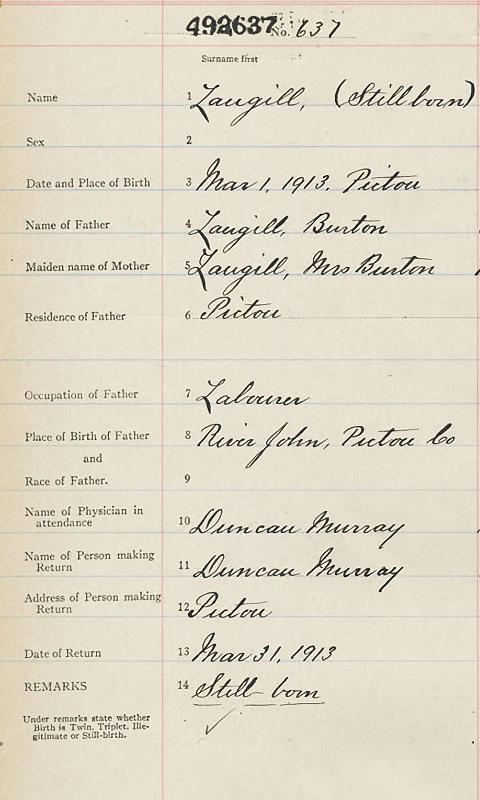 492637 No. 637
Surname first
Name 1 Langill, (Stillborn)
Sex 2
Date and Place of Birth 3 Mar 1, 1913. Pictou
Name of Father 4 Langill, Burton
Maiden name of Mother 5 Langill, Mrs Burton
Residence of Father 6 Pictou
Occupation of Father 7 Labourer
Place of Birth of Father 8 River John, Pictou Co
and
Race of Father. 9
Name of Physician in
attendance 10 Duncan Murray
Name of Person making
Return 11 Duncan Murray
Address of Person making
Return 12 Pictou
Date of Return 13 Mar 31, 1913
REMARKS 14 Still-born
Under remarks state whether
Birth is Twin, Triplet, Ille-
gitimate or Still-birth.